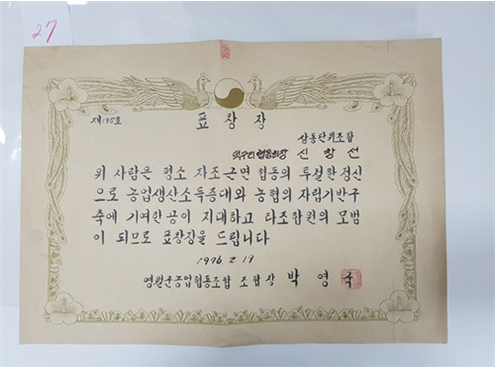 27
제195호
표상장
상동단위조합
협동회장 신창선
위 사람은 평소 자조근면 협동의 투철한 정신
으로 농업생산소득증대와 농협의 자립기반구
축에 기여한 공이 지대하고 타조합원의 모범
이 되므로 표창장을 드립니다
1976 2 19
영월군농업협동조합 조합장 박영국